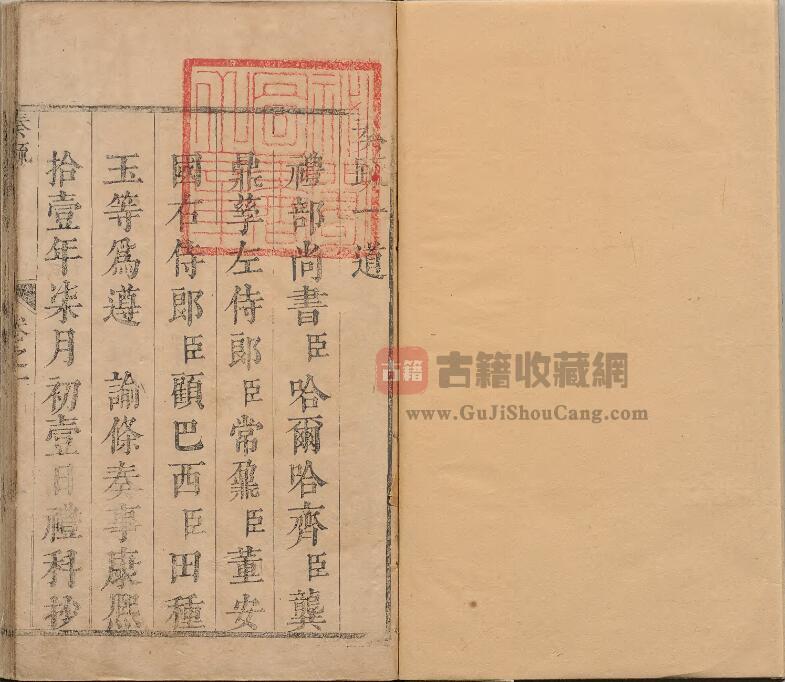 奏疏一道
禮部尚書臣哈爾哈齊臣龔
鼎孳左侍郎臣常鼐臣董安
國右侍郎臣顧巴西臣田種
玉等為遵　諭條奏事康熙
拾壹年柒月初壹日禮科抄
奏疏　卷之一
古籍 古籍收藏網
www.GuJiShouCang.com